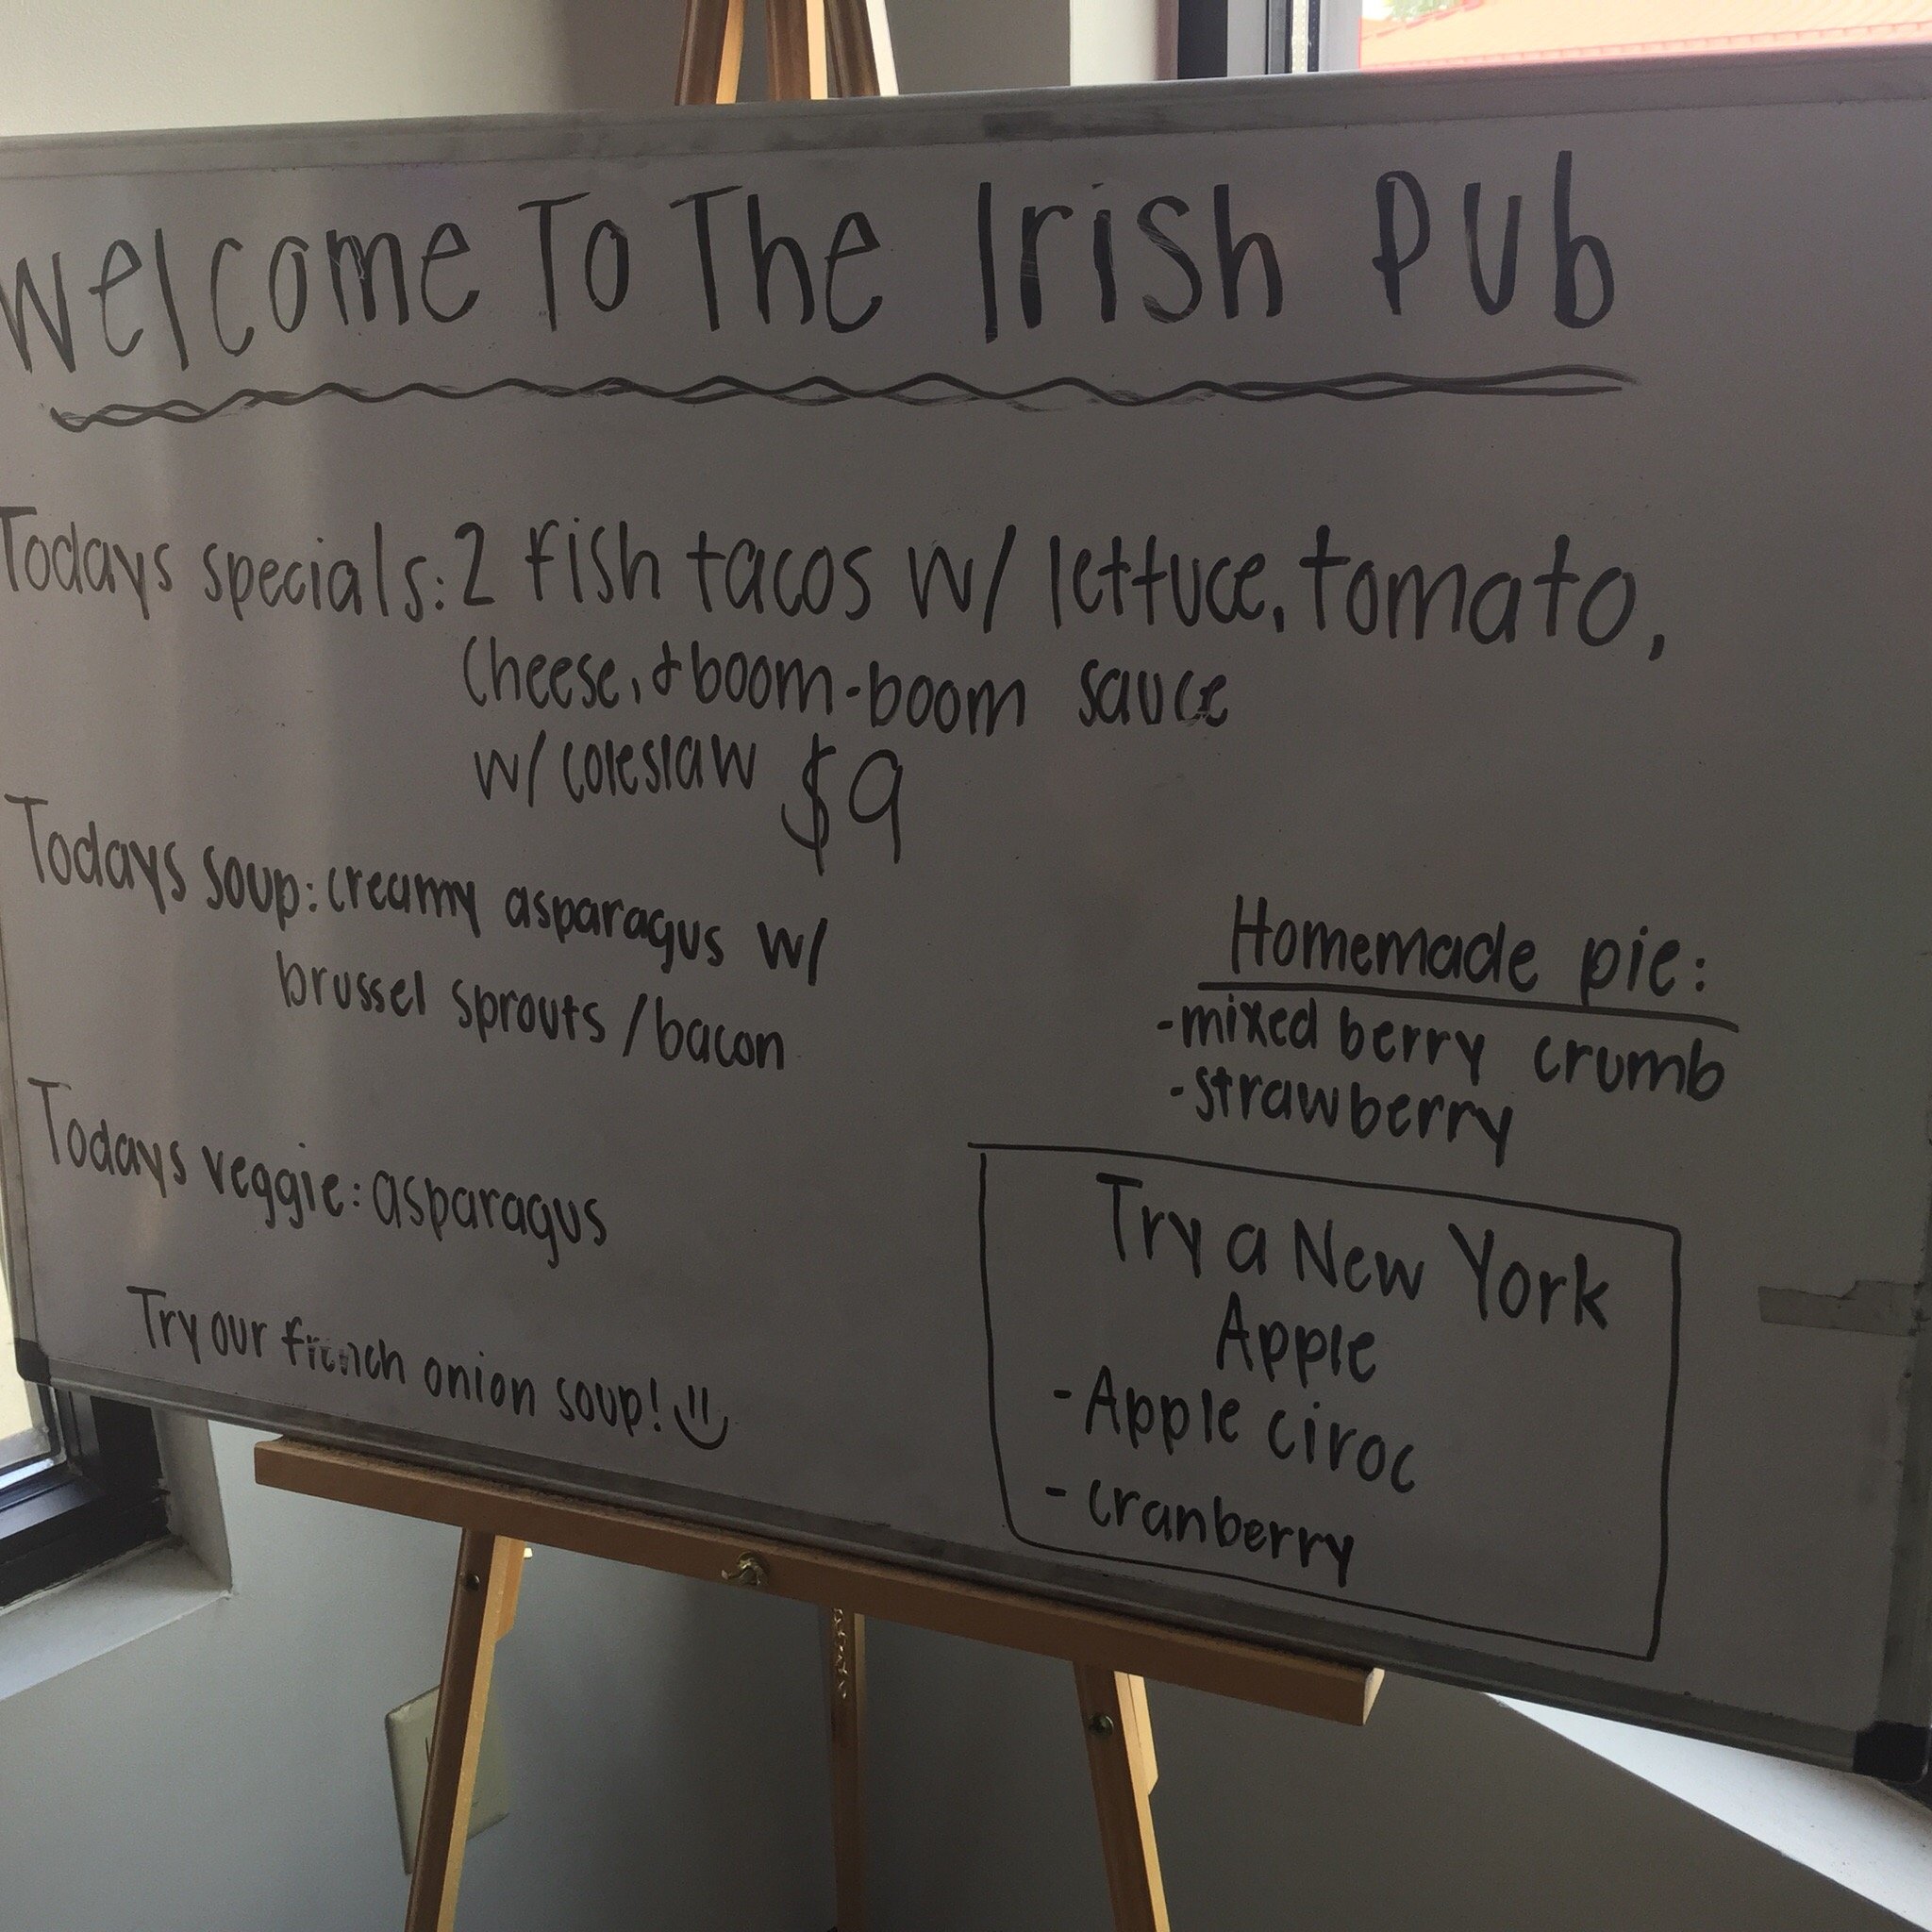 Welcome To The Irish Pub
Todays specials: 2 fish tacos w/ lettuce, tomato,
Cheese, & boom-boom sauce
w/ coleslaw $9
Todays soup: creamy asparagus w/
brussel sprouts / bacon
Todays veggie: asparagus
Try our french onion soup!
Homemade pie:
- mixed berry crumb
- strawberry
Try a New York
Apple
- Apple ciroc
- cranberry